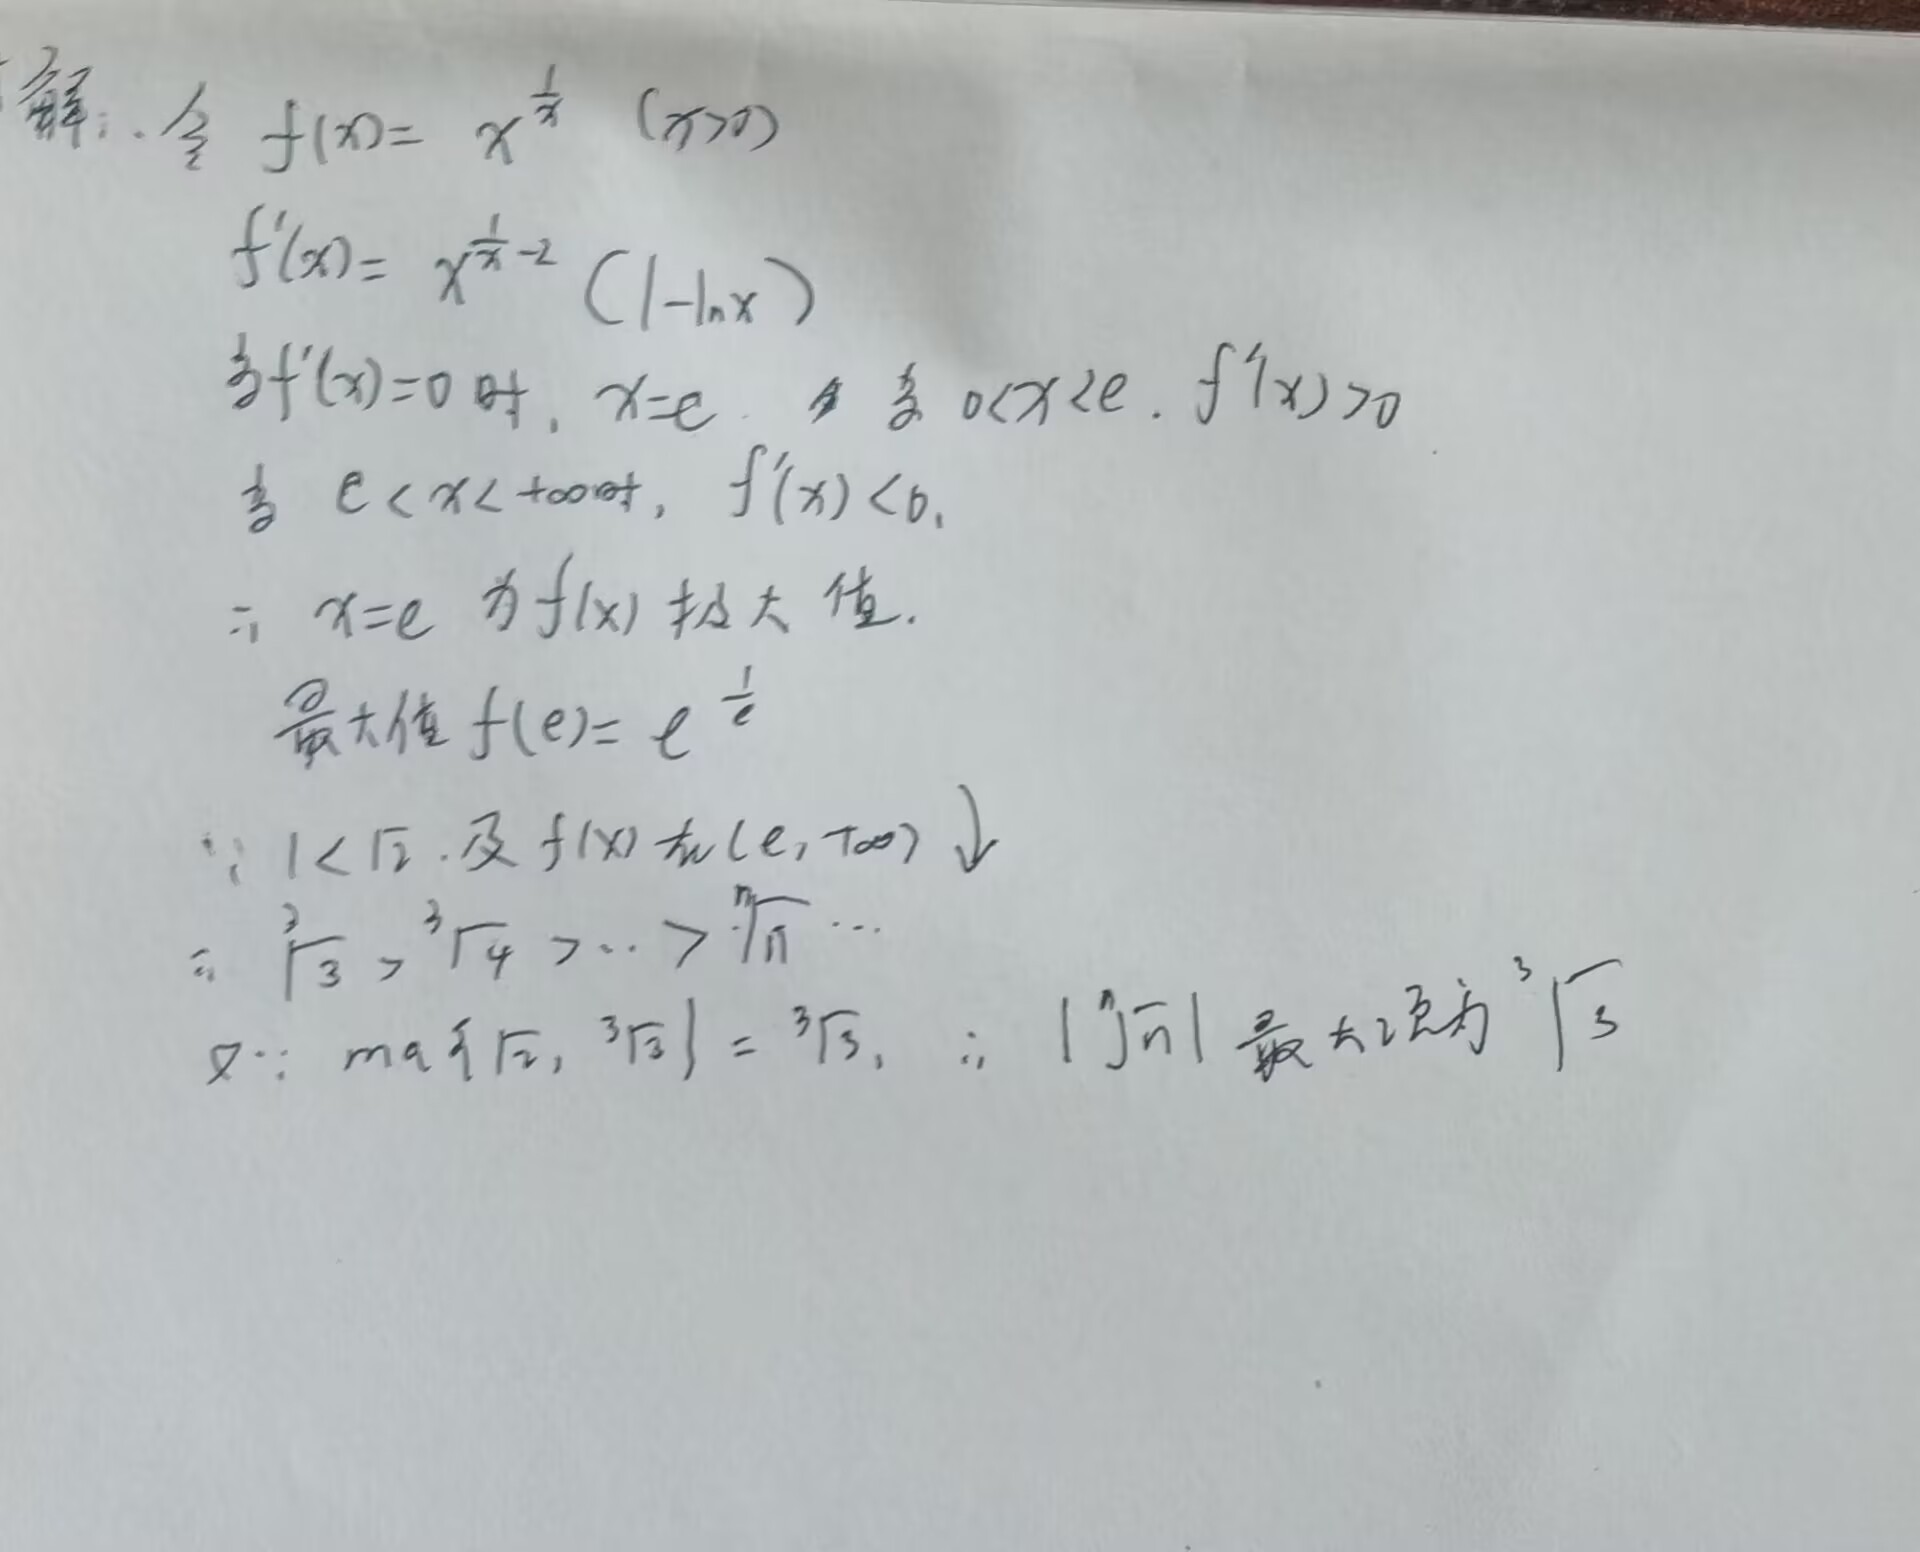 解：令 f(x)= x^{1/x} (x>0)
f'(x)= x^{1/x -2} (1-lnx)
当f'(x)=0时, x=e. 当 0<x<e. f'(x)>0
当 e<x<+∞时, f'(x)<0.
∴ x=e 为f(x) 极大值.
最大值 f(e)= e^{1/e}
∵ 1<√2 . 及 f(x) 在(e, +∞) ↓
∴ ³√3 > ³√4 > … > ⁿ√n …
又∵ max{√2, ³√3} = ³√3, ∴ {ⁿ√n} 最大项为 ³√3